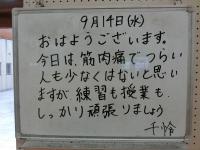 9月14日(水)
おはようございます。
今日は、筋肉痛でつらい
人も少なくはないと思い
ますが、練習も授業も、
しっかり頑張りましょう